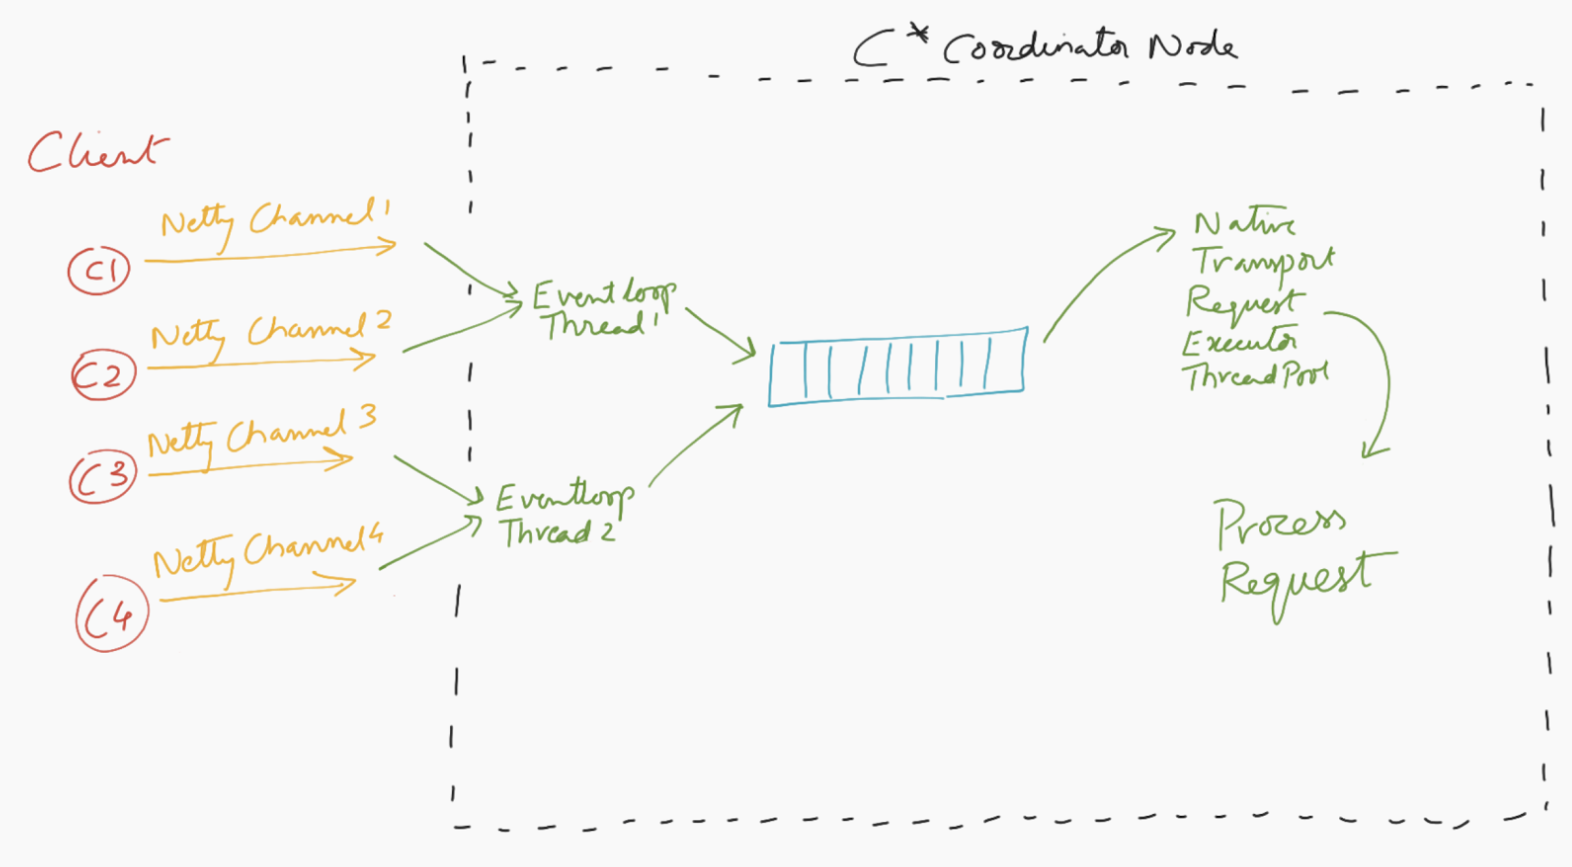 C* Coordinator Node
Client
Netty Channel 1
C1
Netty Channel 2
C2
Netty Channel 3
C3
Netty Channel 4
C4
Event loop
Thread 1
Eventloop
Thread 2
Native
Transport
Request
Executor
ThreadPool
Process
Request